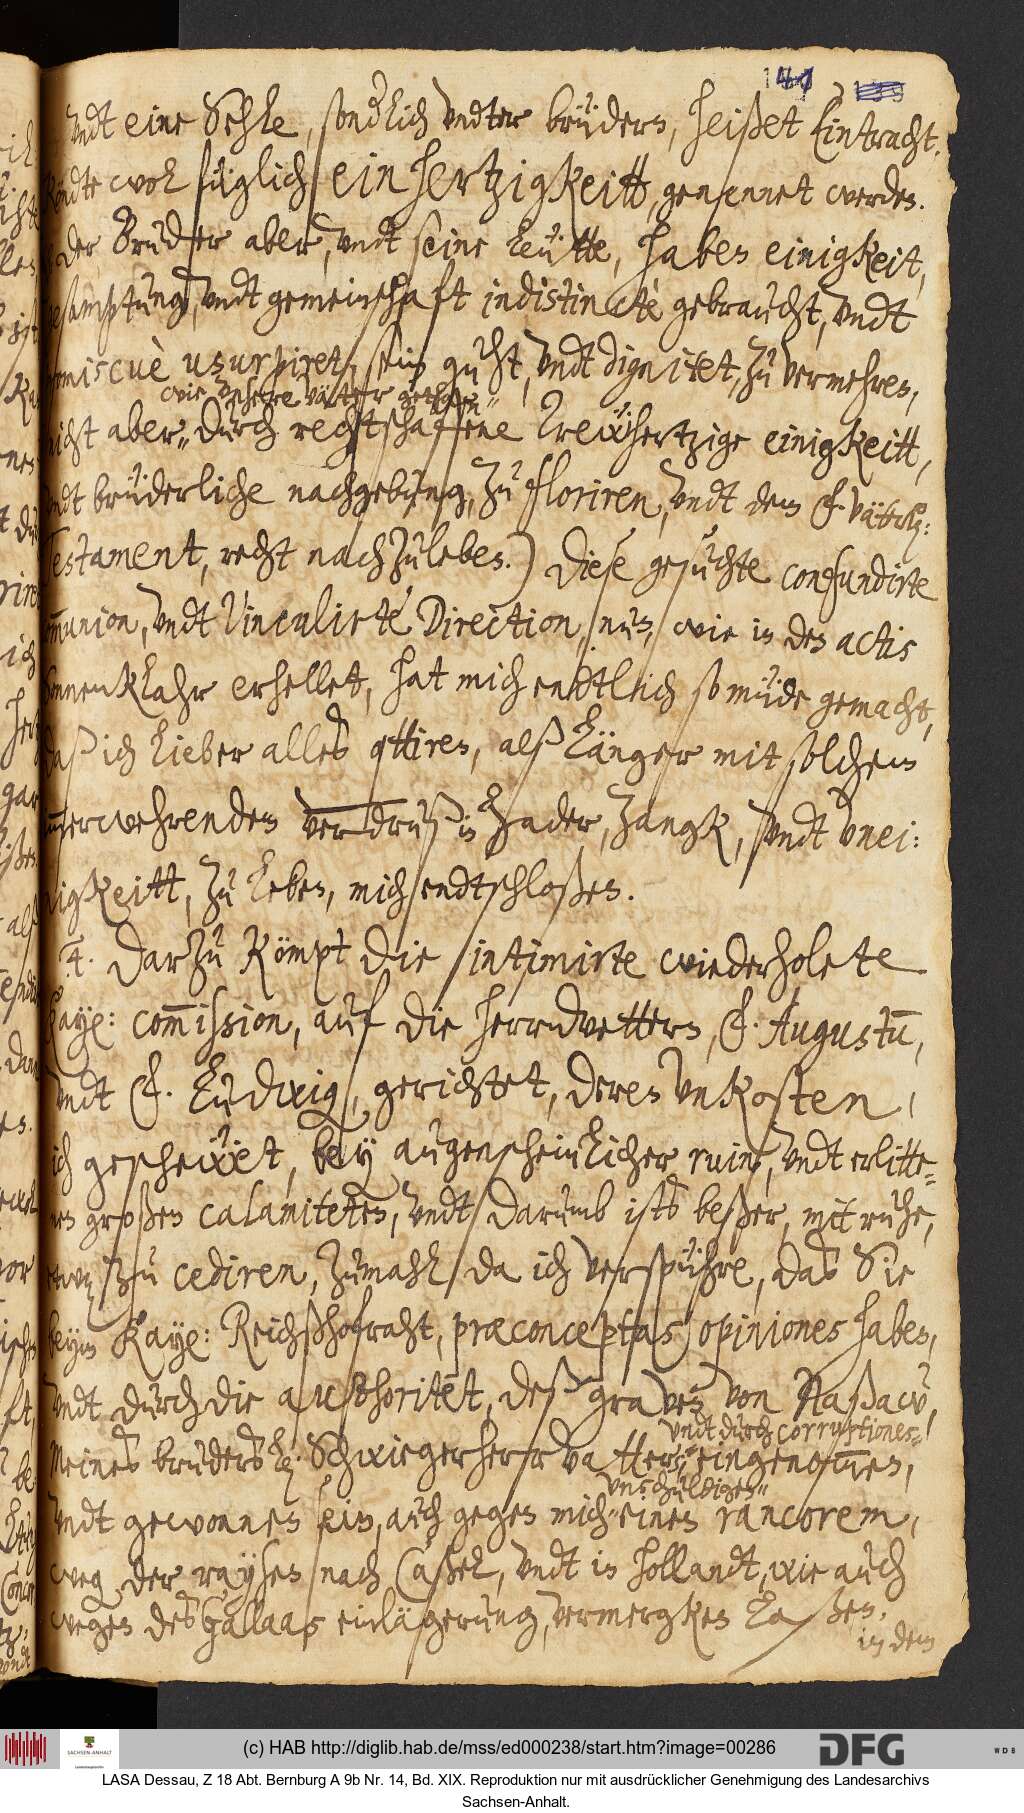 vndt eine Sehle, sonderlich vndter brüdern, heißet Eintracht,
köndte wol füglich einhertzigkeitt, genennet werden.
der Bruder aber, vndt seine leütte, haben einigkeit,
gesamptung, vndt gemeinschaft indistinctè gebraucht, vndt
promiscuè usurpiret, sein gücht, vndt dignitet, zu vermehren,
wie vnsere Vätter gethan"
nicht aber" durch rechtschaffene trewhertzige einigkeitt,
vndt brüderliche nachgebung, zu floriren, vndt dem H. Vätterl:
Testament, recht nachzuleben.) Diese gesuchte confundirte
communion, vndt Vinculirte Direction, nun, wie in den actis
Sonnenklahr erhellet, hat mich endtlich so müde gemacht,
daß ich lieber alles quittiren, alß länger mit solchem
immerwehrenden verdruß in Hader, Zangk, vndt vnei:
nigkeitt, zu leben, mich endtschloßen.
4. Darzu kömpt die intimirte wiederholete
Kaye: com̅ission, auf die herrnvettern, H. Augustu̅,
vndt H. Ludwig, gerichtet, deren vnkosten,
ich gescheüet, bey augenscheinlicher ruin, vndt erlitte-
nen großen calamiteten, vndt darumb ists beßer, mit ruhe,
etwaz zu cediren, zumahl da ich verspühre, das Sie
beym Kaye: Reichßhofraht, præconceptas opiniones haben,
vndt durch die authoritet, deß graven von Naßaw,
vndt durch corruptiones"
Meines bruders Schwiegerherrvattern" eingenom̅en,
vnschuldigen"
vndt gewonnen sein, auch gegen mich" einen rancorem,
weg der raysen nach Caßel, vndt in Hollandt, wie auch
wegen des Gallaaß einlägerung, vermergken laßen.
in dem
(c) HAB http://diglib.hab.de/mss/ed000238/start.htm?image=00286
SACHSEN-ANHALT
DFG
WDB
LASA Dessau, Z 18 Abt. Bernburg A 9b Nr. 14, Bd. XIX. Reproduktion nur mit ausdrücklicher Genehmigung des Landesarchivs
Sachsen-Anhalt.